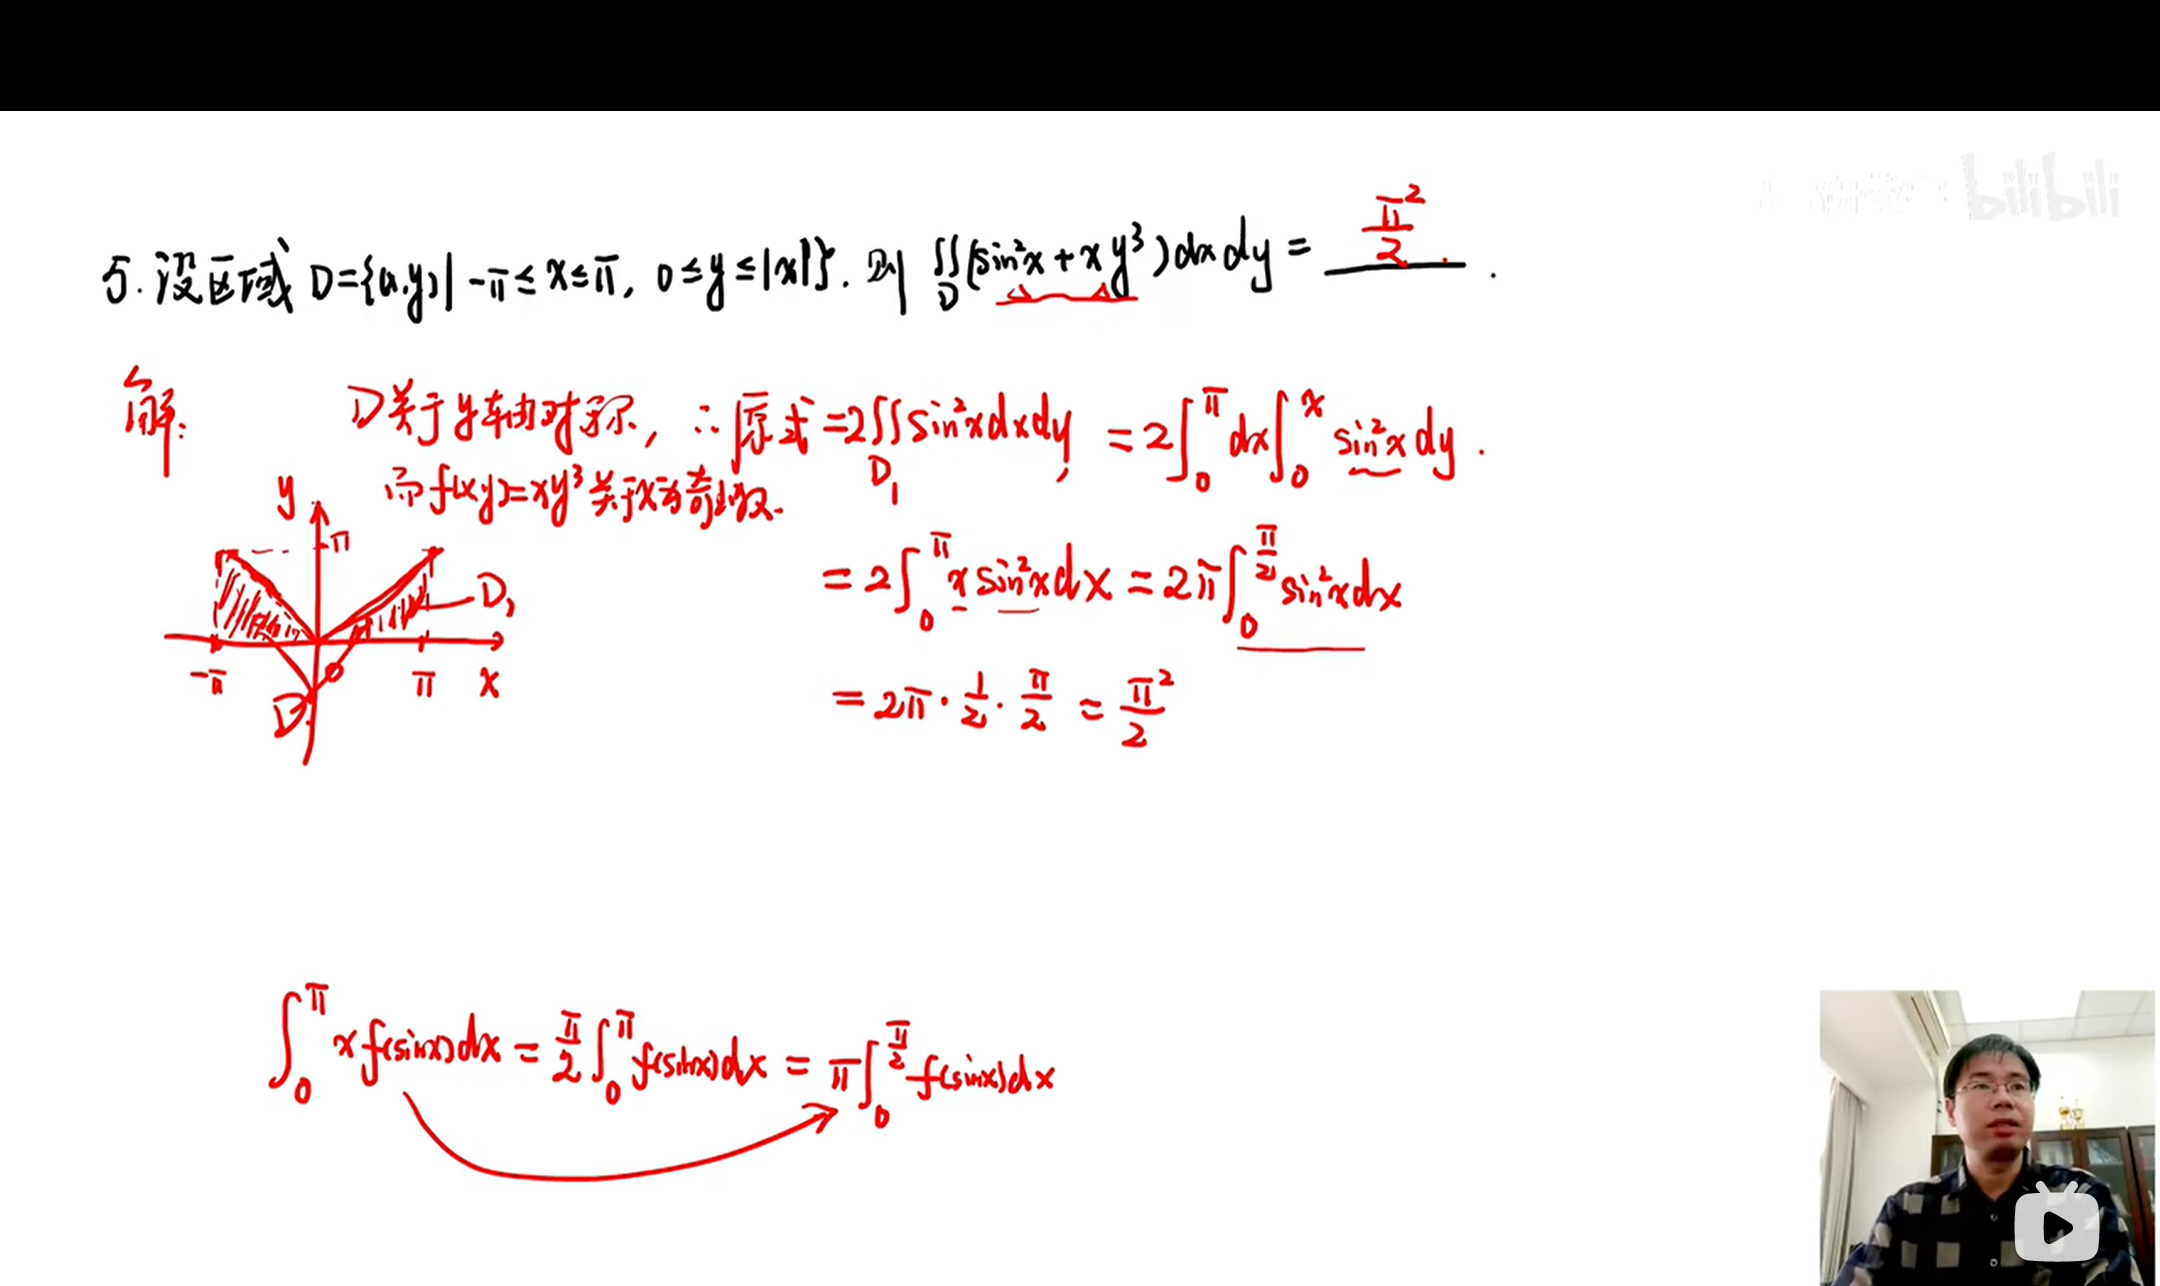 bilibili
5. 设区域 D={(x,y)| -π≤x≤π, 0≤y≤|x|}. 则 ∬_D (sin²x + xy³)dxdy = π²/2 .
解: D关于y轴对称, ∴ 原式 =2∬_{D₁} sin²x dxdy = 2∫₀^π dx∫₀^x sin²x dy .
而 f(x,y)=xy³ 关于x为奇函数.
= 2∫₀^π x sin²x dx = 2π∫₀^{π/2} sin²x dx
= 2π · 1/2 · π/2 = π²/2
y
π
D₁
-π
π
x
D
∫₀^π x f(sinx)dx = π/2 ∫₀^π f(sinx)dx = π∫₀^{π/2} f(sinx)dx